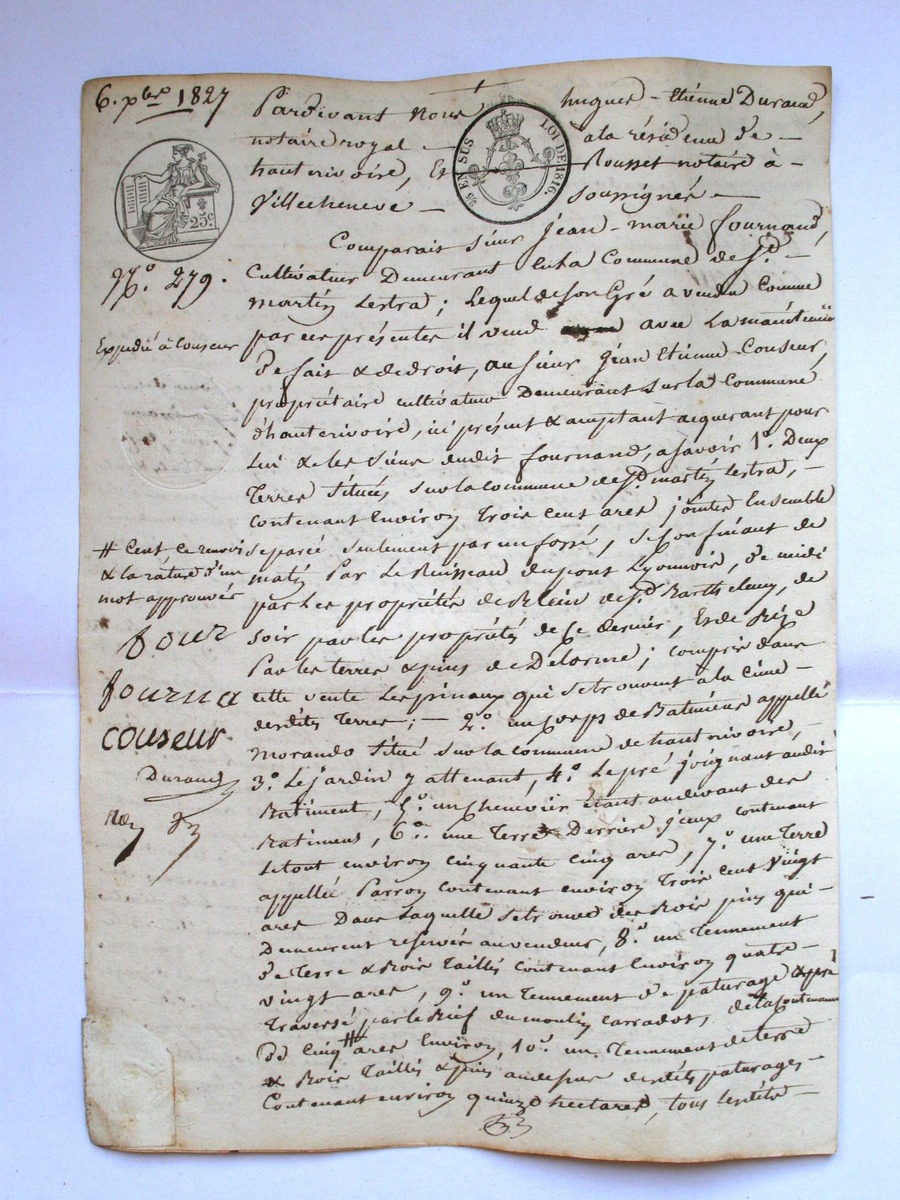 6. xbre 1827
Pardevant Nous hugues - Etiénne Durand,
notaire royal - a la résidence de -
hauterivoire, Et Rousset notaire à -
Villecheneve - soussignés -
EN SUS LOI DE 1816.
25c.
Comparait Sieur Jean - marie fournand,
No. 279.
Cultivateur Demeurant en la Commune de St. -
martin Lestra; Lequel de son Gré a vendu Comme
par ces présentes il vend avec La mainténue
Expédié à Couseur
de fait & de droit, au sieur Jéan Etienne Couseur,
propriétaire cultivateur Demeurant Sur la Commune
d'hauterivoire, ici présent & acceptant acquerant pour
Lui & les siens dudit fournand, a savoir 1o. Deux
Terres Situées Sur la commune de St. martin Lestra, -
contenant Environ Trois Cent ares jointes Ensemble
# Cent, Ce renvoi
& la rature d'un
mot approuvés
separée seulement par un fossé, Se Confinant de
matin Par Le Ruisseau du pont Lyonnois, de midi
par Les propriétés de Blein de St. Barthelemy, de
soir par les propriétés de ce dernier, Et de Bize
Par les terres & pins de Delorme; compris dans
cette vente Les pinaux qui se trouvent à la Cime -
desdites Terres; - 2o. un Corps de Batiméns appellé
morando Situé Sur la commune de hauterivoire, -
3o. Le jardin y attenant, 4o. Le pré joignant audit
Batiment, 5o. un chenevier étant au devant des
Batimens, 6o. une Terre Derrière j'eux contenant
Le tout environ cinquante cinq ares, 7o. une Terre
appellée Parron Contenant environ Trois Cent Vingt
ares Dans Laquelle se trouve des Bois pins qui -
Demeurent reservés au vendeur, 8o. un Tennement
de Terre & Bois Taillis Contenant Environ quatre -
vingt ares, 9o. un Tennement de paturage & pré
Traversé par le Bief du moulin Carrados, de la Contenance
de Cinq # ares Environ, 10o. un Tennement de terre
& Bois Taillis & pins au dessus desdits paturages -
Contenant environ quinze hectares, tous lesdits -
four
fourna
couseur
Durand